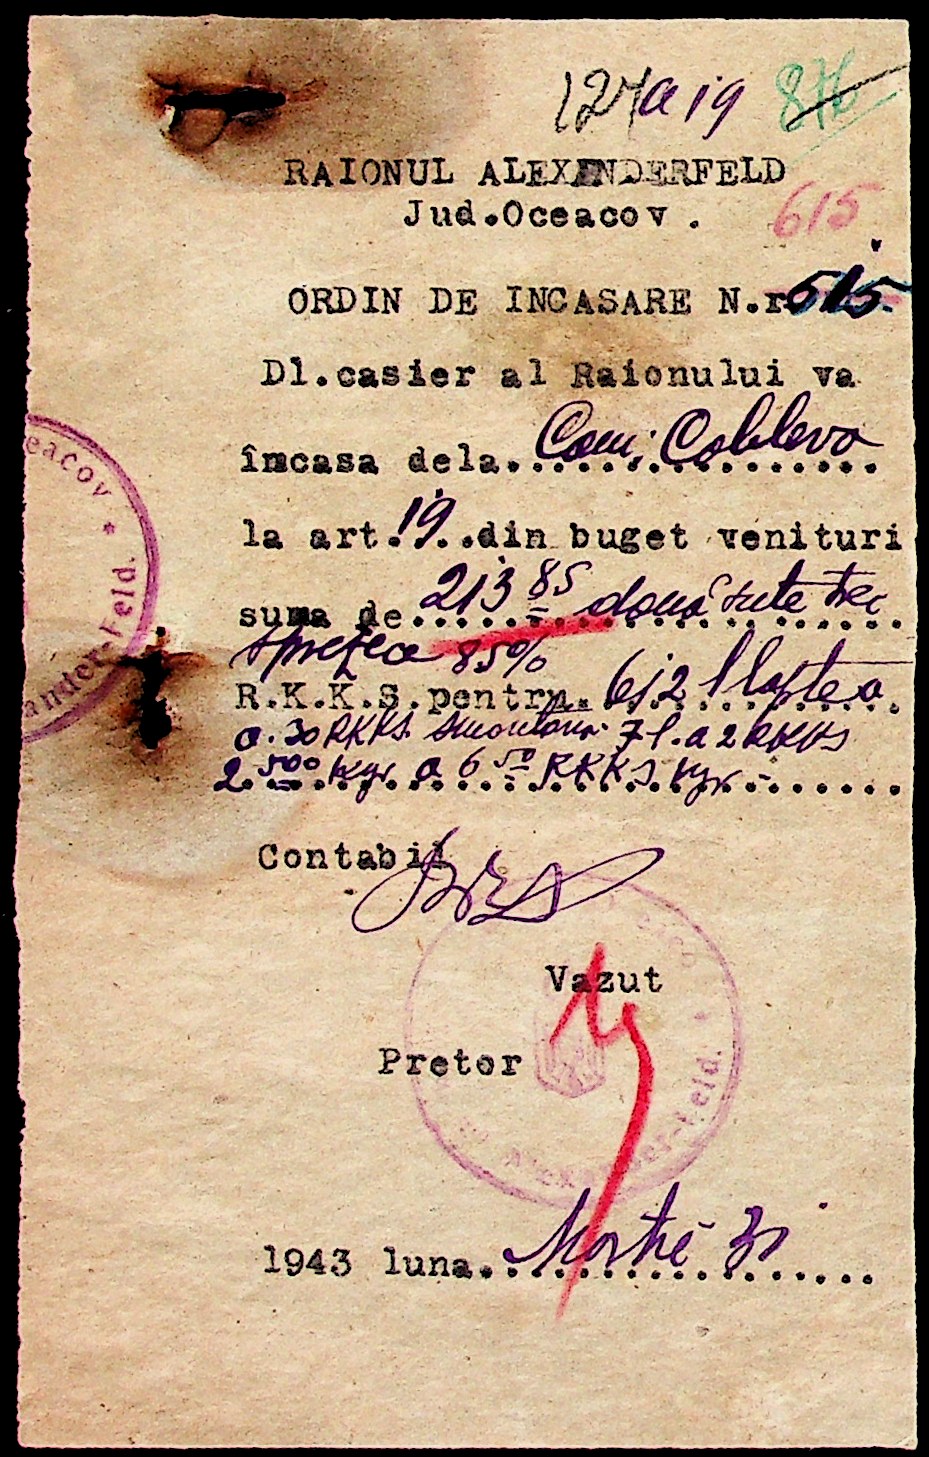 127 a 19 876
RAIONUL ALEXANDERFELD
Jud.Oceacov.
615
ORDIN DE INCASARE N.r. 515
Dl.casier al Raionului va
încasa dela. Com. Cobleva
la art. 19 din buget venituri
suma de 213 85 două sute trei
sprezece 85%
R.K.K.S. pentru 612 l lapte a
0.30 RKKS. smântână 7 l. a 2 RKKS
2.500 Kgr. a 6 50 RKKS Kgr -
Contabil
Vazut
Pretor
1943 luna. Martie 31
eacov *
ander-Feld.
Alexander-Feld.